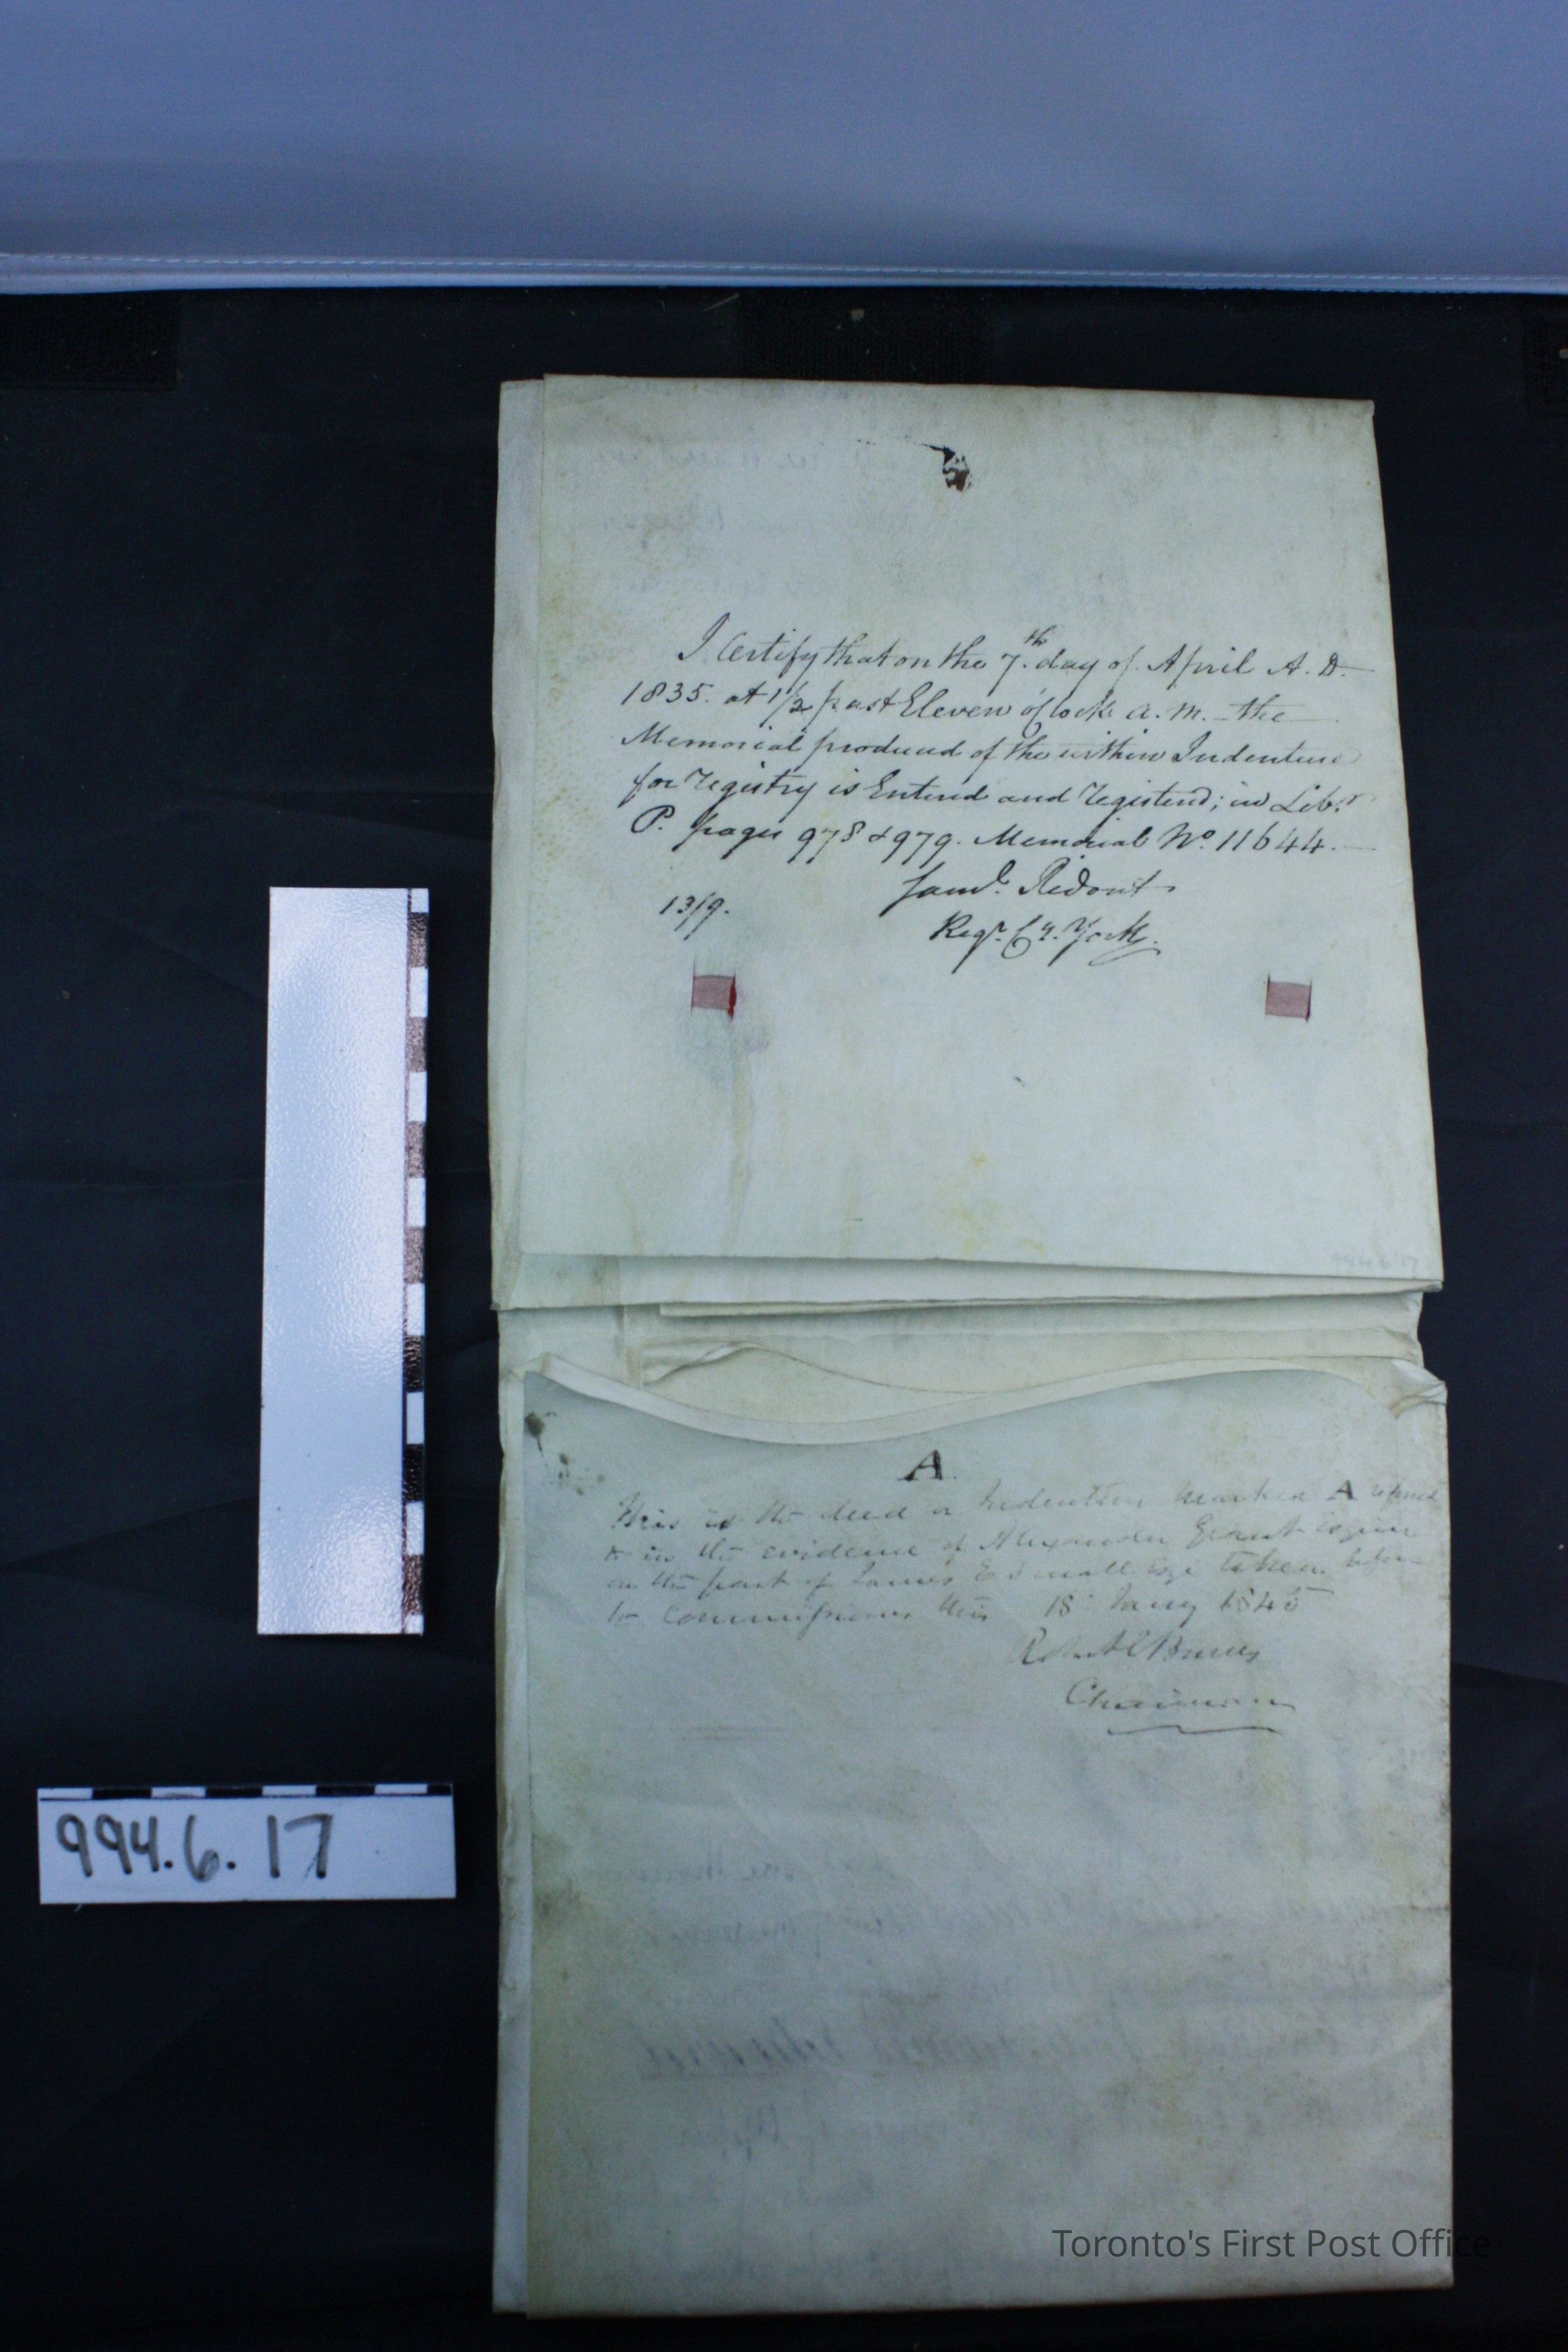 I Certify that on the 7.th day of April A. D.
1835. at 1/2 past Eleven o'Clock a. m. the
Memorial produced of the within Indenture
for registry is Entered and registered; in Lib.r
P. pages 978 & 979. Memorial No. 11644.
Saml. Ridout
13/9.
Regr. Cy. York.
994.6.17
A
This is the deed or Indenture marked A referred
to in the evidence of Alexander Grant Esquire
on the part of James E Small Esqr taken before
the Commissioners this 18 Jany 1845
Robert E Burns
Chairman
994.6.17
Toronto's First Post Office